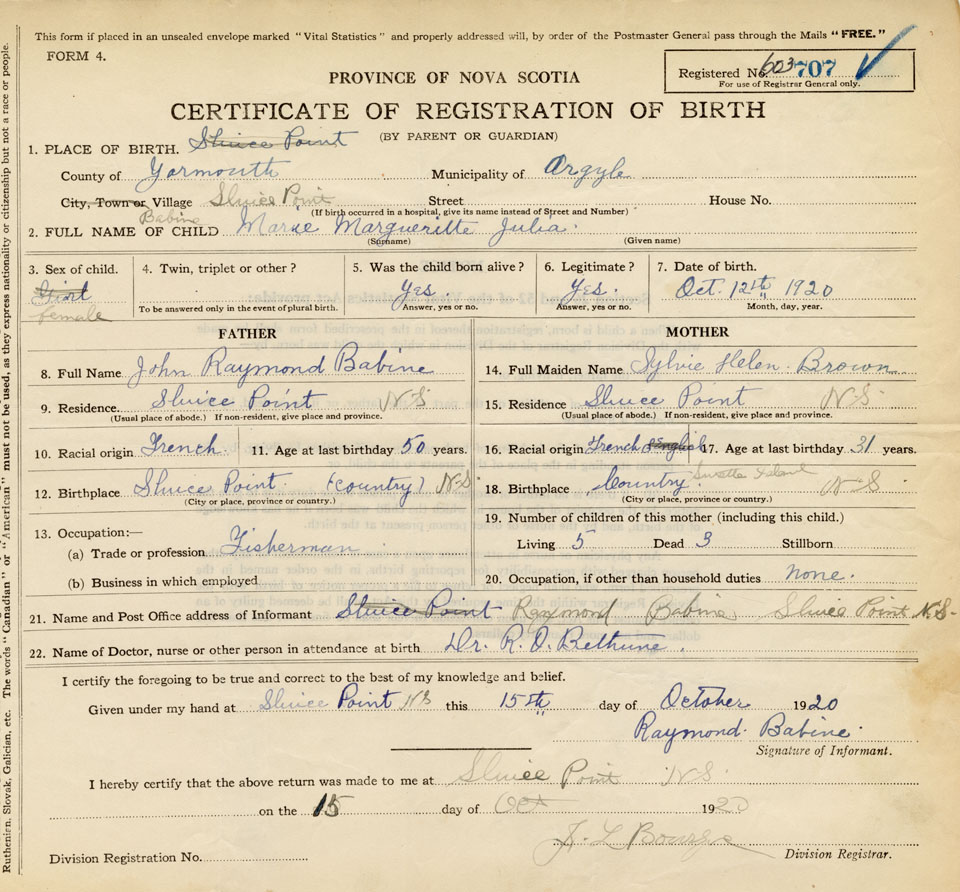 This form if placed in an unsealed envelope marked "Vital Statistics" and properly addressed will, by order of the Postmaster General pass through the Mails "FREE."
FORM 4.
Registered No. 603 707
For use of Registrar General only.
PROVINCE OF NOVA SCOTIA
CERTIFICATE OF REGISTRATION OF BIRTH
(BY PARENT OR GUARDIAN)
1. PLACE OF BIRTH. Sluice Point
County of Yarmouth Municipality of Argyle
City, Town or Village Sluice Point Street House No.
(If birth occurred in a hospital, give its name instead of Street and Number)
Babine
2. FULL NAME OF CHILD Marie Margueritte Julia.
(Surname) (Given name)
3. Sex of child. 4. Twin, triplet or other? 5. Was the child born alive? 6. Legitimate? 7. Date of birth.
Girl Yes. Yes. Oct. 12th 1920
female To be answered only in the event of plural birth. Answer, yes or no. Answer, yes or no. Month, day, year.
FATHER MOTHER
8. Full Name John Raymond Babine 14. Full Maiden Name Sylvie Helen. Brown
9. Residence. Sluice Point NS 15. Residence Sluice Point NS
(Usual place of abode.) If non-resident, give place and province. (Usual place of abode.) If non-resident, give place and province.
10. Racial origin French. 11. Age at last birthday 50 years. 16. Racial origin French English 17. Age at last birthday 31 years.
12. Birthplace Sluice Point. (Country) N.S 18. Birthplace Country Island N-S
(City or place, province or country.) (City or place, province or country.)
13. Occupation:— 19. Number of children of this mother (including this child.)
(a) Trade or profession Fisherman Living 5 Dead 3 Stillborn
(b) Business in which employed 20. Occupation, if other than household duties none.
21. Name and Post Office address of Informant Sluice Point Raymond Babine Sluice Point N.S.
22. Name of Doctor, nurse or other person in attendance at birth Dr. R. O. Bethune.
I certify the foregoing to be true and correct to the best of my knowledge and belief.
Given under my hand at Sluice Point NS this 15th day of October 1920
Raymond. Babine.
Signature of Informant.
I hereby certify that the above return was made to me at Sluice Point N.S.
on the 15 day of Oct 1920
J. L Bourge
Division Registration No. Division Registrar.
Ruthenien, Slovak, Galician, etc. The words "Canadian" or "American" must not be used, as they express nationality or citizenship but not a race or people.